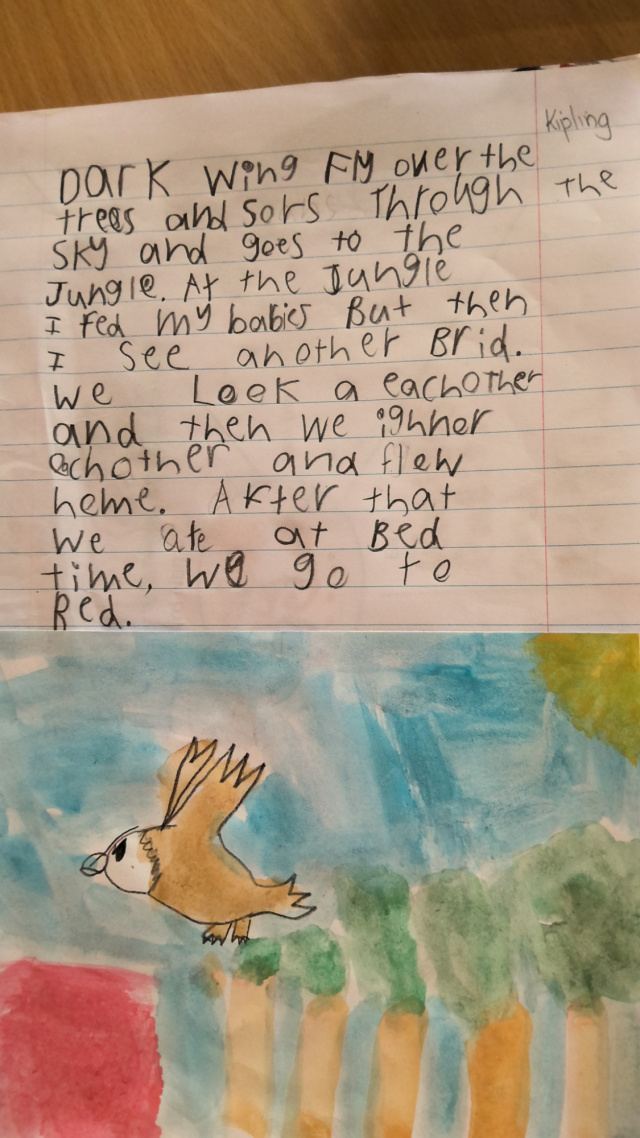 Kipling
Dark Wing Fly over the
trees and sors Through the
sky and goes to the
Jungle. At the Jungle
I fed my babies But then
I see another Brid.
we Look a eachother
and then we ighner
echother and flew
home. After that
we ate at Bed
time, we go to
Bed.